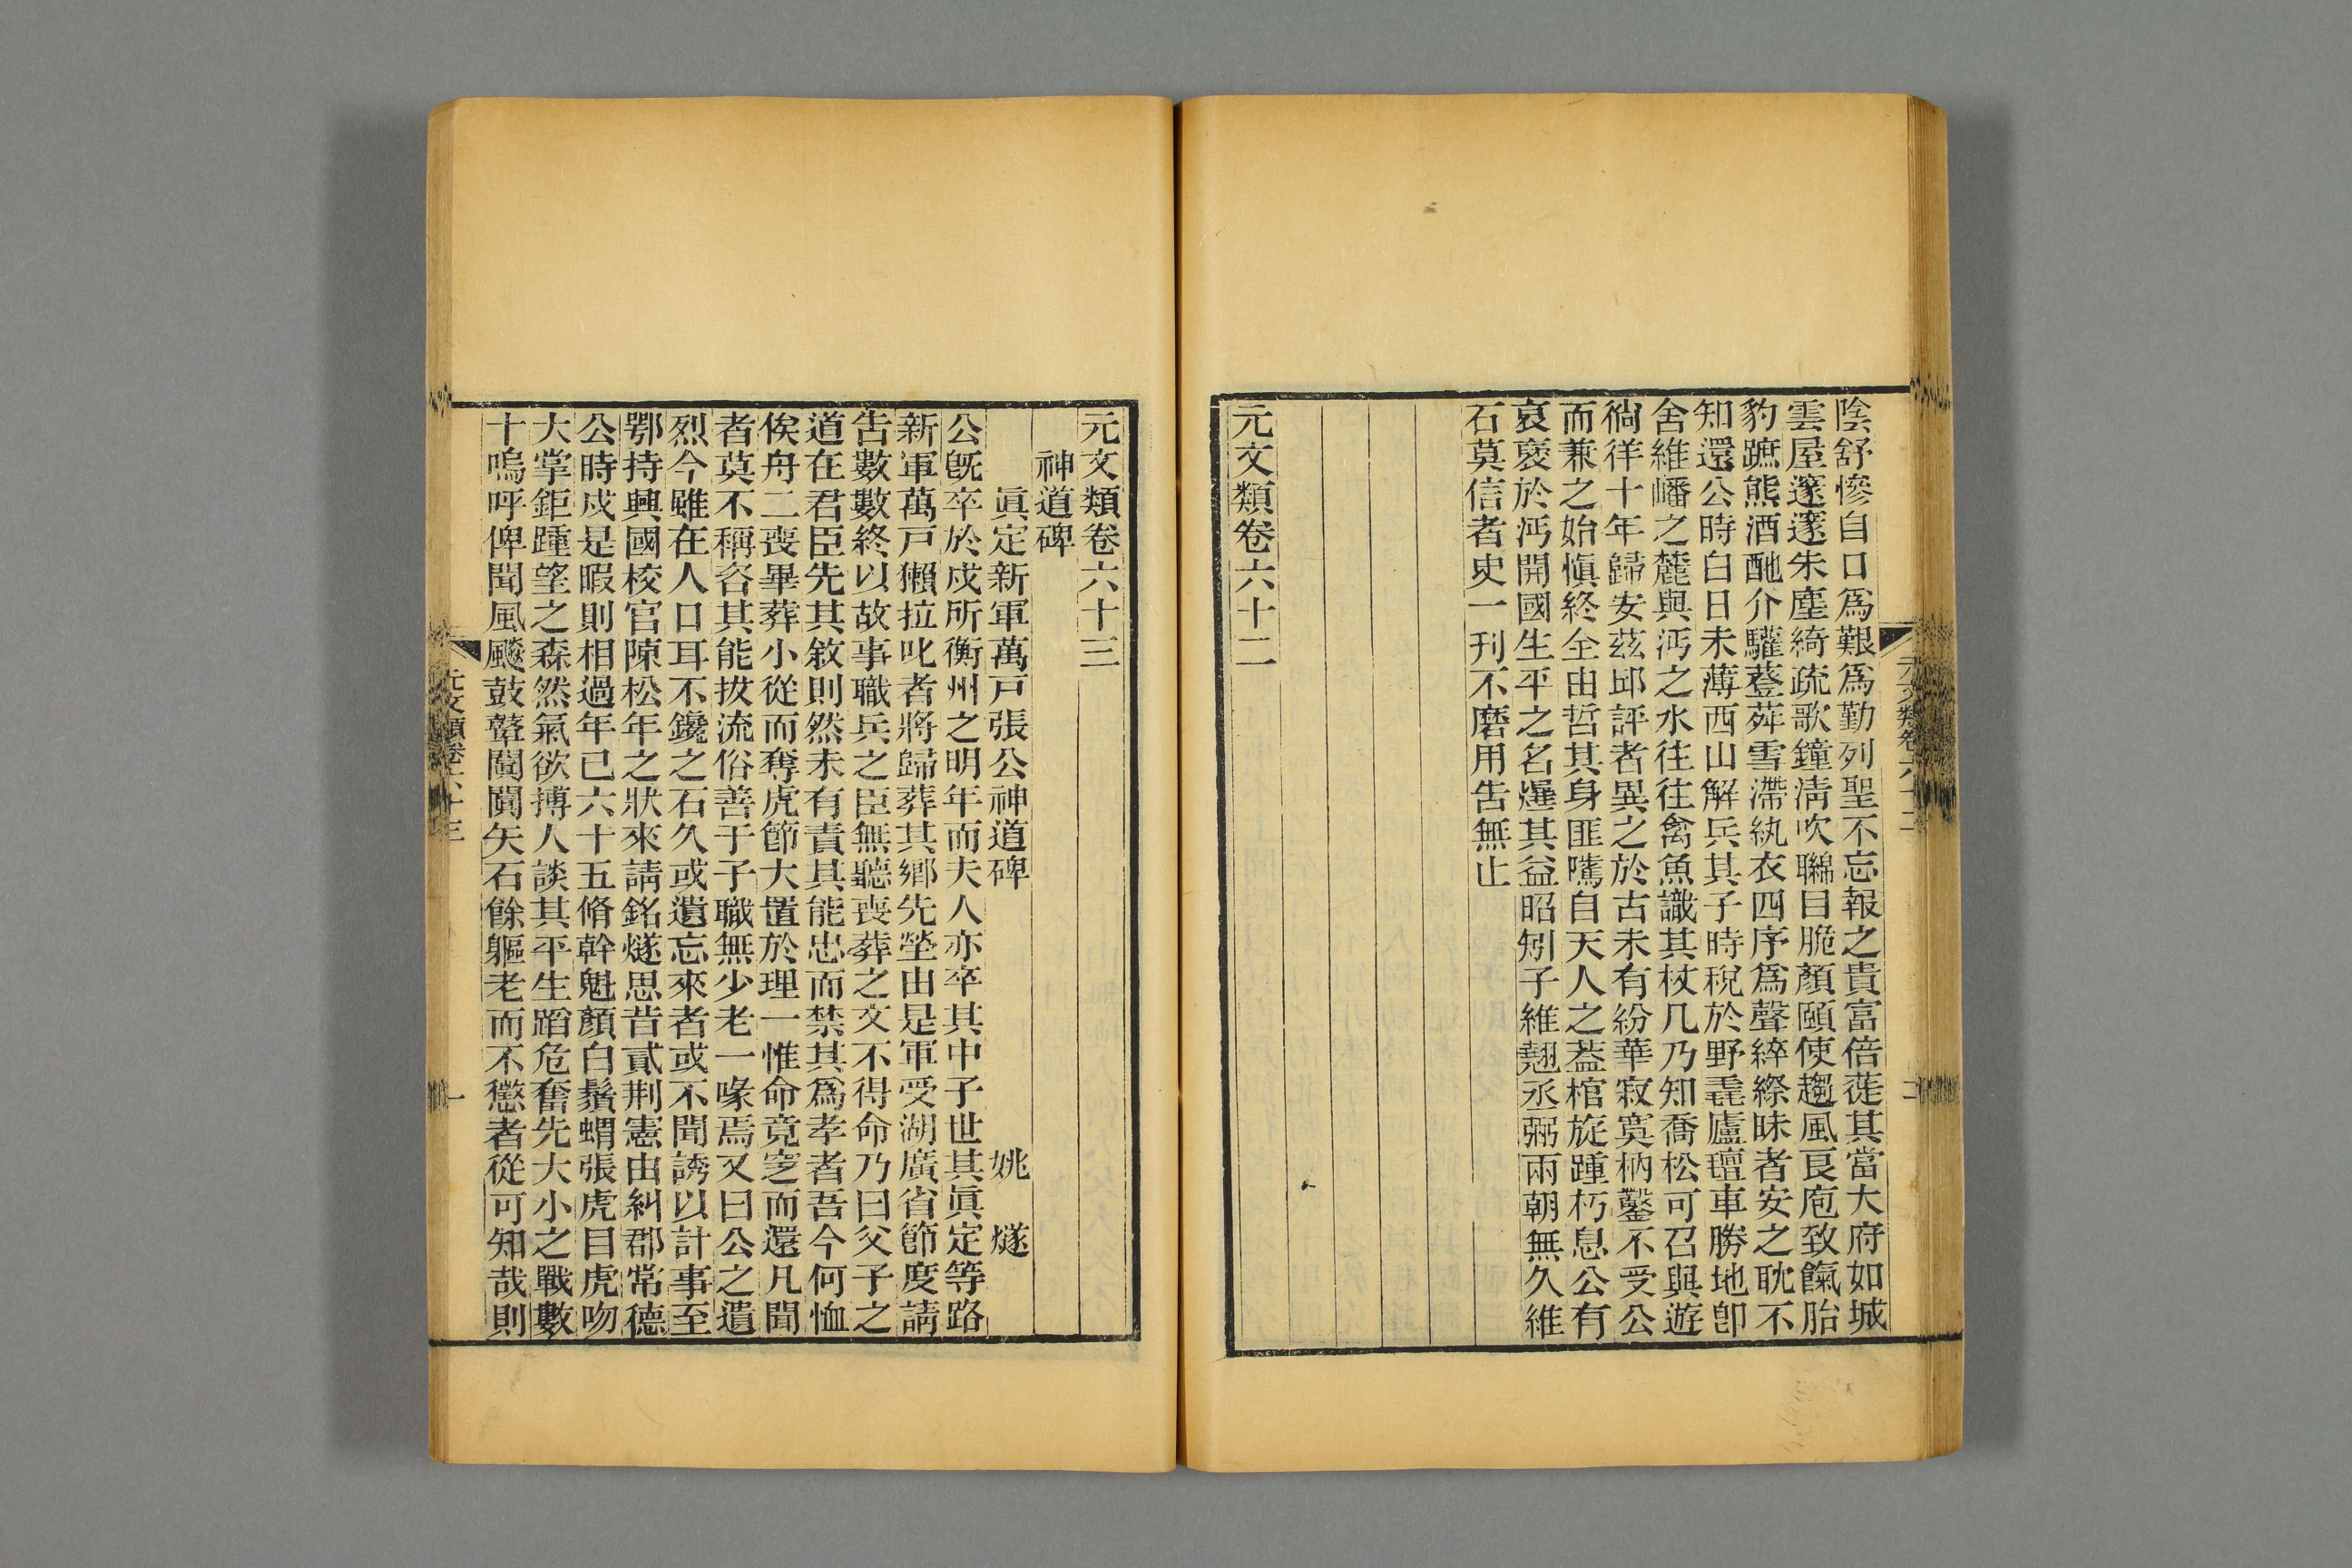 陰舒慘自口爲艱爲勤列聖不忘報之貴富倍蓰其當大府如城
雲屋邃邃朱塵綺疏歌鐘淸吹聯目脆顏頤使趨風良庖致餼胎
豹蹠熊酒酏介驩薹薺雪滯紈衣四序爲聲綷縩昧者安之耽不
知還公時白日未薄西山解兵其子時稅於野毳廬氊車勝地卽
舍維皤之麓與沔之水往往禽魚識其杖几乃知喬松可召與遊
徜徉十年歸安茲邱評者異之於古未有紛華寂寞枘鑿不受公
而兼之始愼終全由哲其身匪隲自天人之蓋棺旋踵朽息公有
哀褒於沔開國生平之名爗其益昭矧子維翹丞弼兩朝無久維
石莫信者史一刊不磨用告無止
元文類卷六十二
元文類卷六十三
神道碑
眞定新軍萬戸張公神道碑 姚燧
公旣卒於戍所衡州之明年而夫人亦卒其中子世其眞定等路
新軍萬戸獺拉叱者將歸葬其鄉先塋由是軍受湖廣省節度請
吿數數終以故事職兵之臣無聽喪葬之文不得命乃曰父子之
道在君臣先其敘則然未有責其能忠而禁其爲孝者吾今何恤
俟舟二喪畢葬小從而奪虎節大置於理一惟命竟窆而還凡聞
者莫不稱咨其能拔流俗善于子職無少老一喙焉又曰公之遺
烈今雖在人口耳不鑱之石久或遺忘來者或不聞誘以計事至
鄂持興國校官陳松年之狀來請銘燧思昔貳荆憲由糾郡常德
公時戍是暇則相過年已六十五脩幹魁顏白鬚蝟張虎目虎吻
大掌鉅踵望之森然氣欲搏人談其平生蹈危奮先大小之戰數
十嗚呼俾聞風飈鼓鼙闐闐矢石餘軀老而不懲者從可知哉則
元文類卷六十三 一